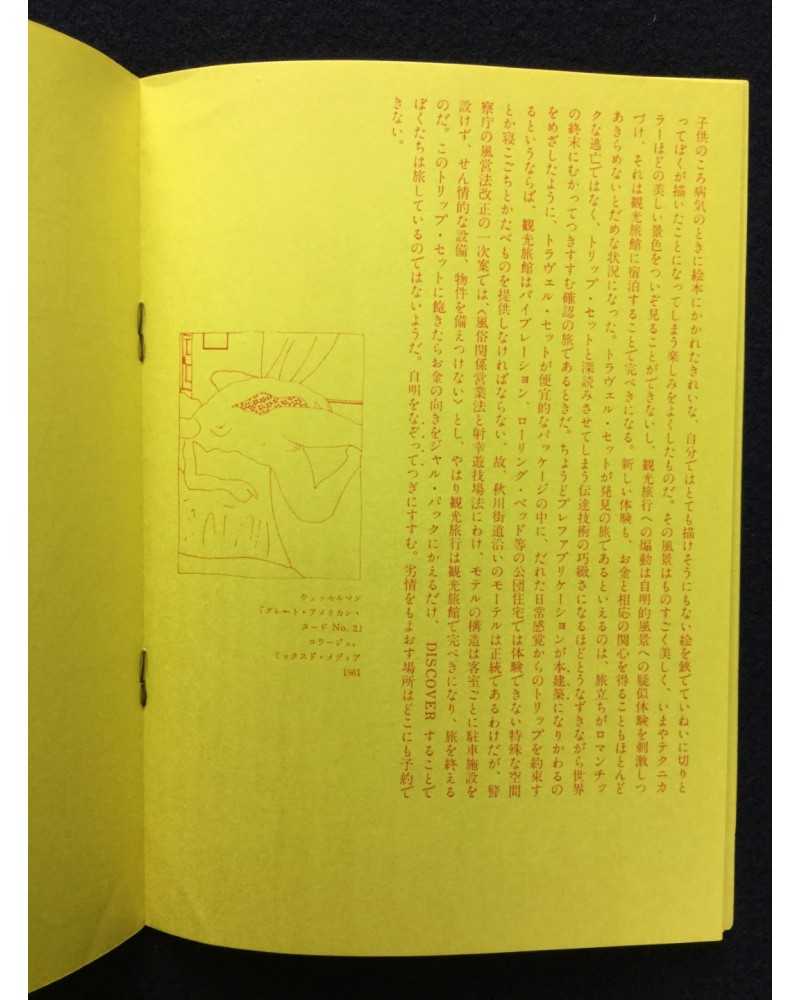 子供のころ病気のときに絵本にかかれたきれいな、自分ではとても描けそうにもない絵を鋏でていねいに切りと
ってぼくが描いたことになってしまう楽しみをよくしたものだ。その風景はものすごく美しく、いまやテクニカ
ラーほどの美しい景色をついぞ見ることができないし、観光旅行への煽動は自明的風景への疑似体験を刺激しつ
づけ、それは観光旅館に宿泊することで完ぺきになる。新しい体験も、お金と相応の関心を得ることもほとんど
あきらめないとだめな状況になった。トラヴェル・セットが発見の旅であるといえるのは、旅立ちがロマンチッ
クな逃亡ではなく、トリップ・セットと深読みさせてしまう伝達技術の巧緻さになるほどとうなずきながら世界
の終末にむかってつきすすむ確認の旅であるときだ。ちょうどプレファブリケーションが本建築になりかわるの
をめざしたように、トラヴェル・セットが便宜的なパッケージの中に、だれた日常感覚からのトリップを約束す
るというならば、観光旅館はバイブレーション、ローリング・ベッド等の公団住宅では体験できない特殊な空間
とか寝ごこちとかたべものを提供しなければならない。故、秋川街道沿いのモーテルは正統であるわけだが、警
察庁の風営法改正の一次案では、〈風俗関係営業法と射幸遊技場法にわけ、モテルの構造は客室ごとに駐車施設を
設けず、せん情的な設備、物件を備えつけない〉とし、やはり観光旅行は観光旅館で完ぺきになり、旅を終える
のだ。このトリップ・セットに飽きたらお金の向きをジャル・パックにかえるだけ、 DISCOVER することで
ぼくたちは旅しているのではないようだ。自明をなぞってつぎにすすむ。劣情をもよおす場所はどこにも予約で
きない。
ウェッセルマン
『グレート・アメリカン・
ヌード No. 2』
コラージュ,
ミックスド・メディア
1961